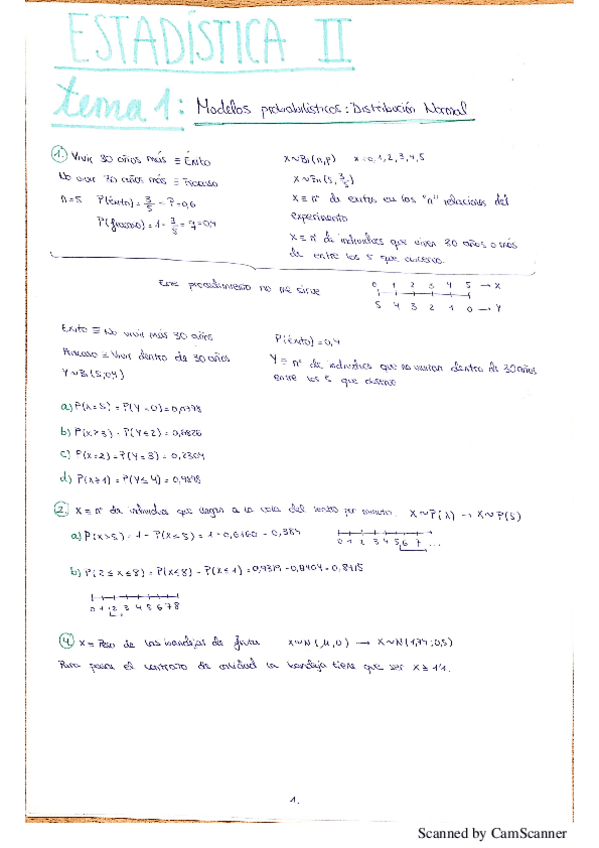 ESTADÍSTICA II
tema 1: Modelos probabilísticos: Distribución Normal
1. Vivir 30 años más ≡ Éxito
No vivir 30 años más ≡ Fracaso
n=5 P(éxito) = 3/5 - P=0,6
P(fracaso) = 1 - 3/5 = q = 0,4
X∼Bi(n,p) x=0,1,2,3,4,5
X∼Bi(5, 3/5)
X ≡ nº de éxitos en las "n" del
experimento
X ≡ nº de individuos que viven 30 años o más
de entre los 5 que
Este procedimiento no me sirve
0 1 2 3 4 5 → X
5 4 3 2 1 0 → Y
Éxito ≡ No vivir más 30 años
Fracaso ≡ Vivir dentro de 30 años
Y∼Bi(5,0,4)
P(éxito) = 0,4
Y ≡ nº de individuos que no vivan dentro de 30 años
entre los 5 que
a) P(X=5) = P(Y=0) = 0,0778
b) P(X≥3) = P(Y≤2) = 0,6826
c) P(X=2) = P(Y=3) = 0,2304
d) P(X≥1) = P(Y≤4) = 0,9898
2. X ≡ nº de individuos que llegan a la cola del por minuto. X∼P(λ) → X∼P(5)
a) P(X>5) = 1 - P(X≤5) = 1 - 0,6160 = 0,384
0 1 2 3 4 5 6 7 ...
b) P(2≤X≤8) = P(X≤8) - P(X≤1) = 0,9319 - 0,0404 = 0,8915
0 1 2 3 4 5 6 7 8
4. X ≡ Peso de las bandejas de fresas X∼N(μ,σ) → X∼N(1,74;0,5)
Para pasar el control de calidad la bandeja tiene que ser X ≥ 1'1.
1.
Scanned by CamScanner